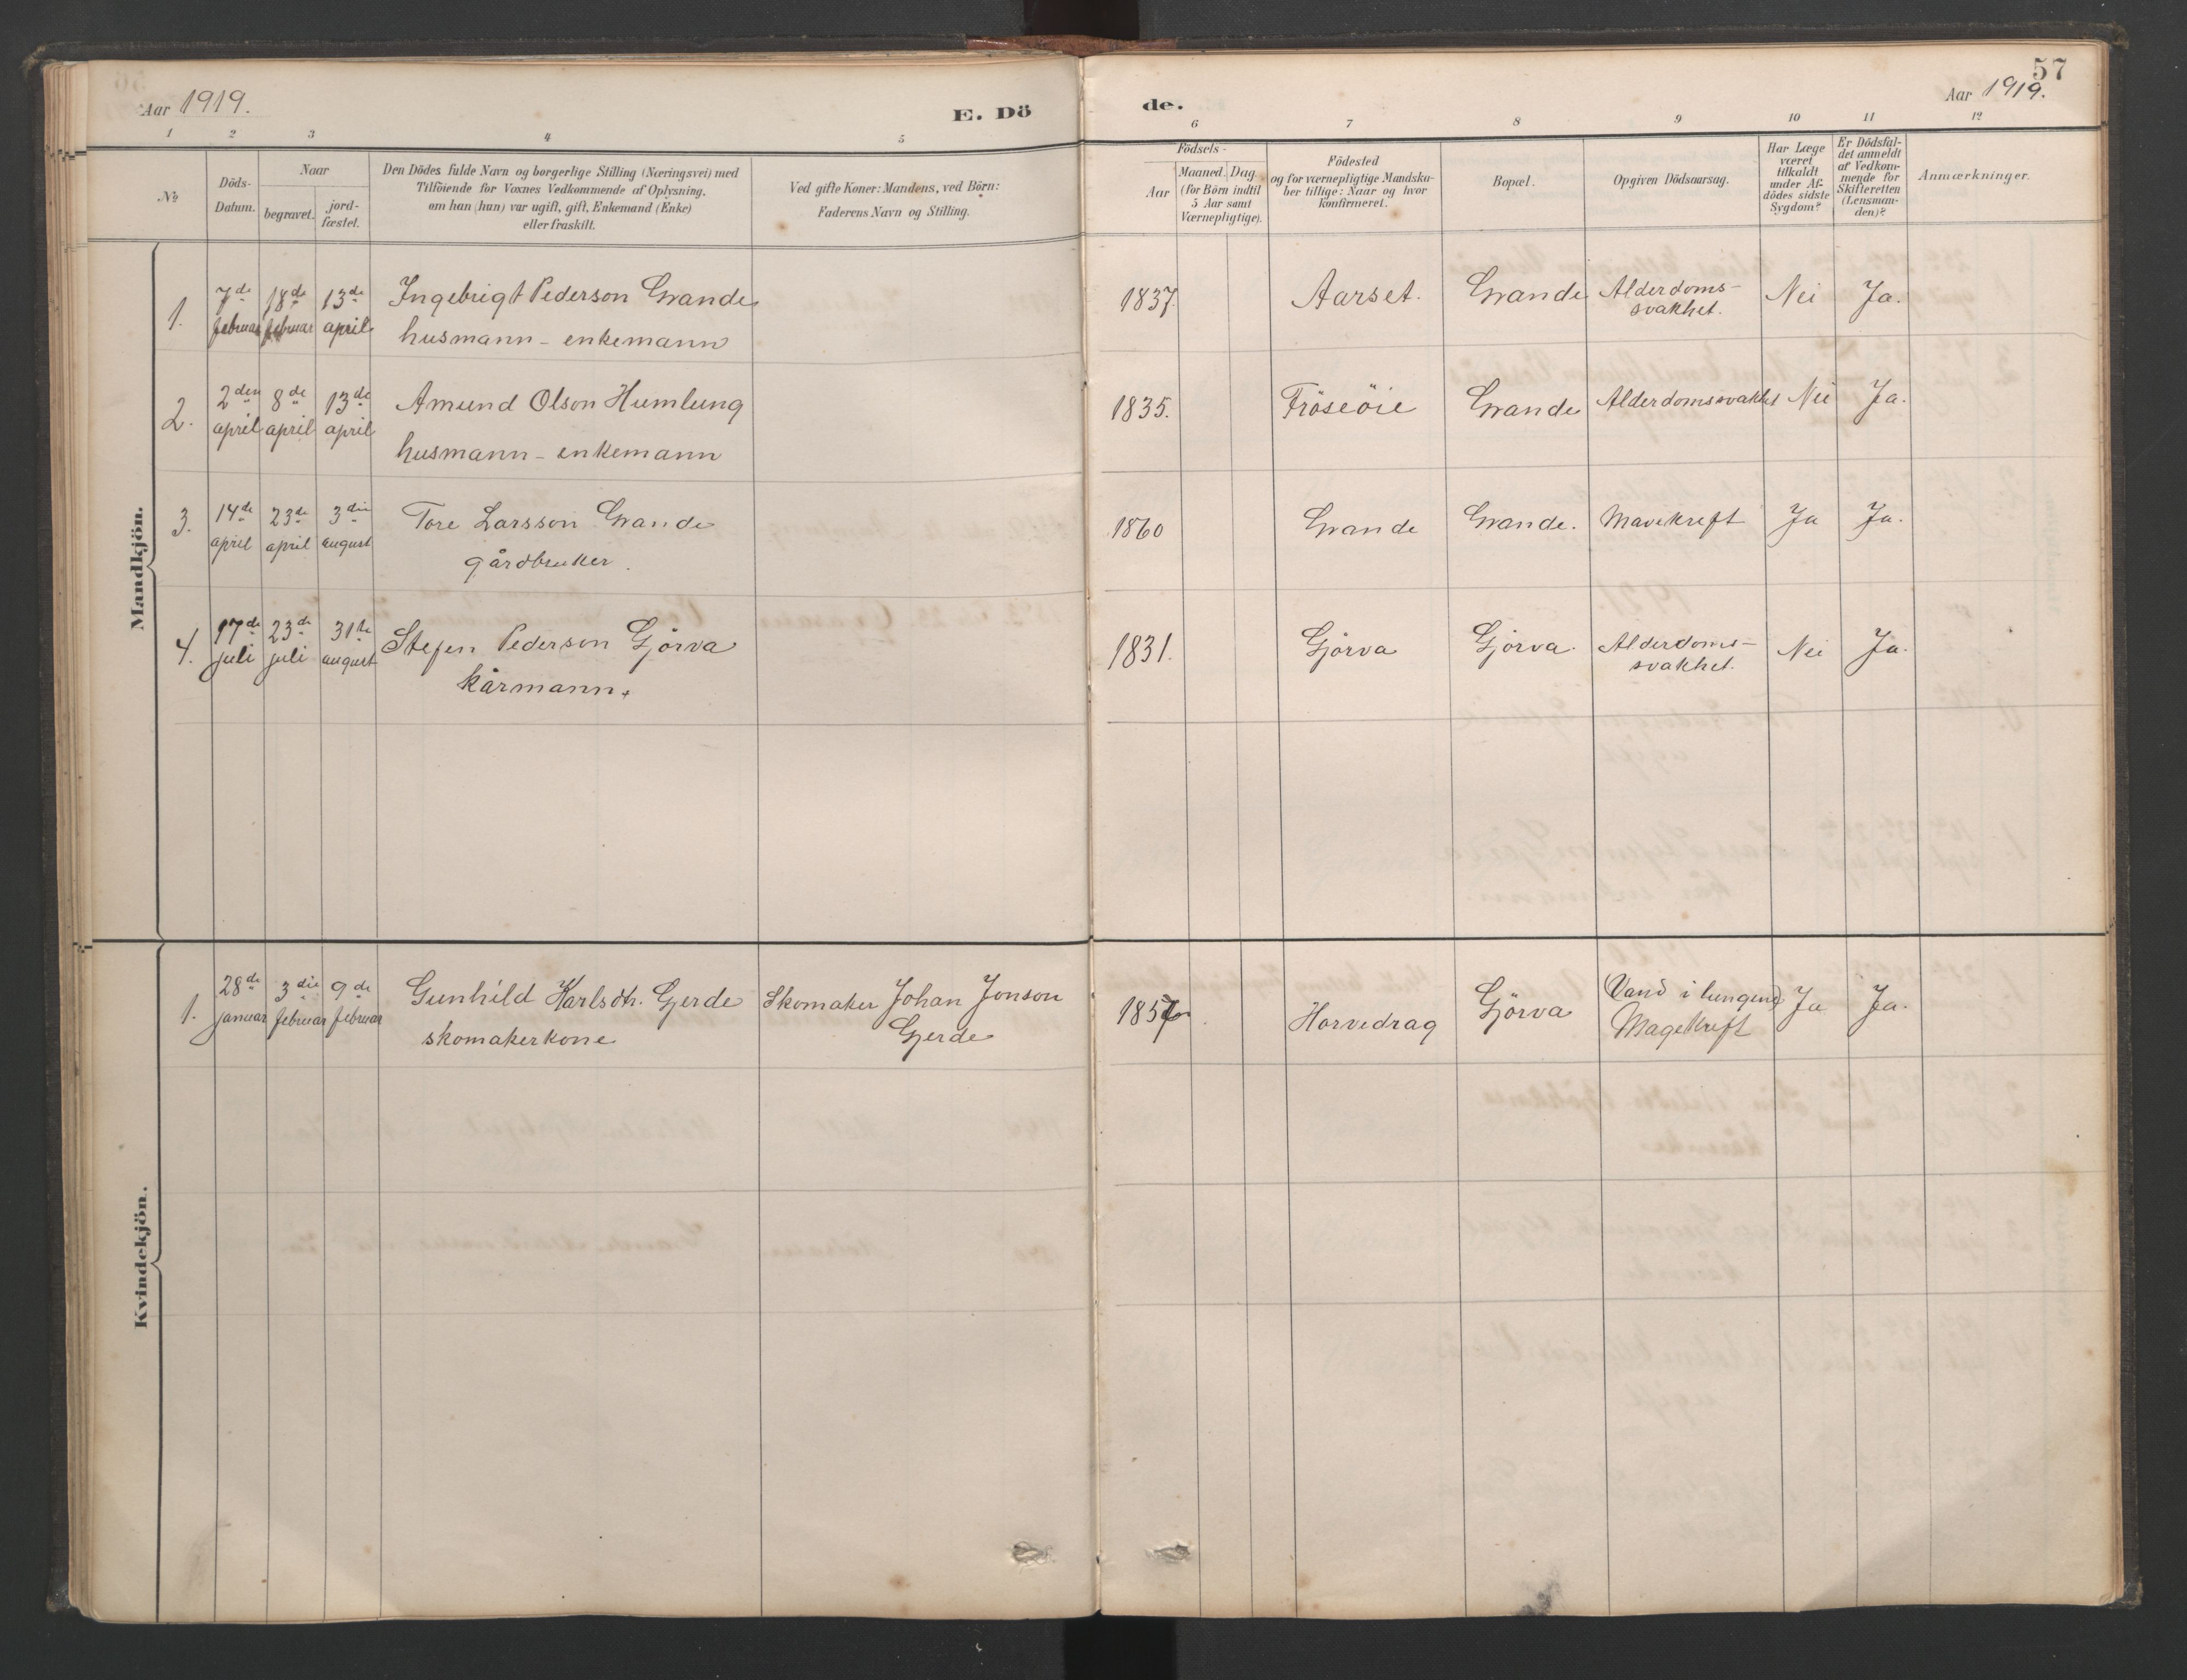 57
Aar 1919.
E. Dö
de.
Aar 1919.
1 2 3 4 5 6 7 8 9 10 11 12
No
Döds-
Datum.
Naar
begravet.
jord-
fæstet.
Den Dödes fulde Navn og borgerlige Stilling (Næringsvei) med
Tilföiende for Voxnes Vedkommende af Oplysning,
om han (hun) var ugift, gift, Enkemand (Enke)
eller fraskilt.
Ved gifte Koner: Mandens, ved Börn:
Faderens Navn og Stilling.
Födsels-
Aar
Maaned. Dag.
(for Börn indtil
5 Aar samt
Værnepligtige).
Födested
og for værnepligtige Mandska-
ber tillige: Naar og hvor
konfirmeret.
Bopæl.
Opgiven Dödsaarsag.
Har Læge
været
tilkaldt
under Af-
dödes sidste
Sygdom?
Er Dödsfal-
det anmeldt
af Vedkom-
mende for
Skifteretten
(Lensman-
den)?
Anmærkninger.
Mandkjön.
1.
7de
februar
18de
februar
13de
april
Ingebrigt Pederson Grande
husmann - enkemann
1837.
Aarset.
Grande
Alderdoms-
svakhet.
Nei
Ja.
2.
2den
april
8de
april
13de
april
Amund Olson Humlung
husmann - enkemann
1835.
Fröseöie
Grande
Alderdomssvakhet
Nei
Ja.
3.
14de
april
23de
april
3die
august
Tore Larsson Grande
gårdbruker.
1860
Grande
Grande.
Mavekreft
Ja
Ja.
4.
17de
juli
23de
juli
31te
august
Stefen Pederson Gjörva
kårmann.
1831.
Gjörva
Gjörva.
Alderdoms-
svakhet.
Nei
Ja.
Kvindekjön.
1.
28de
januar
3die
februar
9de
februar
Gunhild Karlsdtr. Gjerde
skomakerkone
Skomaker Johan Jonson
Gjerde
Horvedrag
Gjörva
(Vand i lungene)
Magekreft
Ja
Ja.